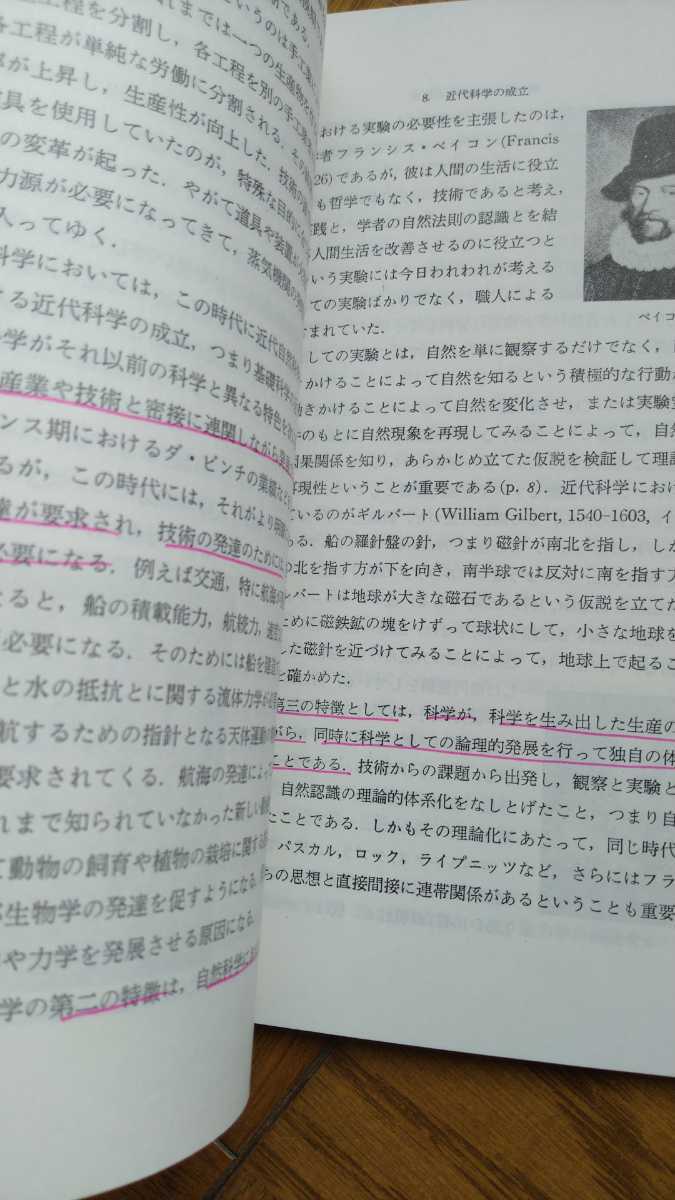 工程を分割し，各工程を別の手工
各工程が単純な労働に分割される．その
が上昇し，生産性が向上した．技術の
具を使用していたのが，特殊な目的に
の変革が起った．やがて道具や装置が
力源が必要になってきて，蒸気機関の
入ってゆく．
科学においては，この時代に近代自然
る近代科学の成立，つまり基礎科学
学がそれ以前の科学と異なる特色を
産業や技術と密接に連関しながら発
ンス期におけるダ・ビンチの業績など
るが，この時代には，それがより明
達が要求され，技術の発達のためには
必要になる．例えば交通，特に航海の
なると，船の積載能力，航続力，速度
必要になる．そのためには船を建造
と水の抵抗とに関する流体力学が
航するための指針となる天体運動の
要求されてくる．航海の発達によっ
れまで知られていなかった新しい動
て動物の飼育や植物の栽培に関する
生物学の発達を促すようになる．
や力学を発展させる原因になる．
学の第二の特徴は，自然科学に
8. 近代科学の成立
おける実験の必要性を主張したのは，
者フランシス・ベイコン(Francis
26)であるが，彼は人間の生活に役立
も哲学でもなく，技術であると考え，
践と，学者の自然法則の認識とを結
人間生活を改善させるのに役立つと
いう実験には今日われわれが考える
ての実験ばかりでなく，職人による
まれていた．
ベイコ
しての実験とは，自然を単に観察するだけでなく，
かけることによって自然を知るという積極的な行動
働きかけることによって自然を変化させ，または実験室
のもとに自然現象を再現してみることによって，自然
因果関係を知り，あらかじめ立てた仮説を検証して理論
再現性ということが重要である(p. 8)．近代科学におけ
ているのがギルバート(William Gilbert, 1540–1603, イ
ある．船の羅針盤の針，つまり磁針が南北を指し，しか
つ北を指す方が下を向き，南半球では反対に南を指す方
ルバートは地球が大きな磁石であるという仮説を立てた
ために磁鉄鉱の塊をけずって球状にして，小さな地球を
した磁針を近づけてみることによって，地球上で起るこ
を確かめた．
第三の特徴としては，科学が，科学を生み出した生産の
がら，同時に科学としての論理的発展を行って独自の体
ことである．技術からの課題から出発し，観察と実験と
自然認識の理論的体系化をなしとげたこと，つまり自
たことである．しかもその理論化にあたって，同じ時代
パスカル，ロック，ライプニッツなど，さらにはフラ
らの思想と直接間接に連帯関係があるということも重要